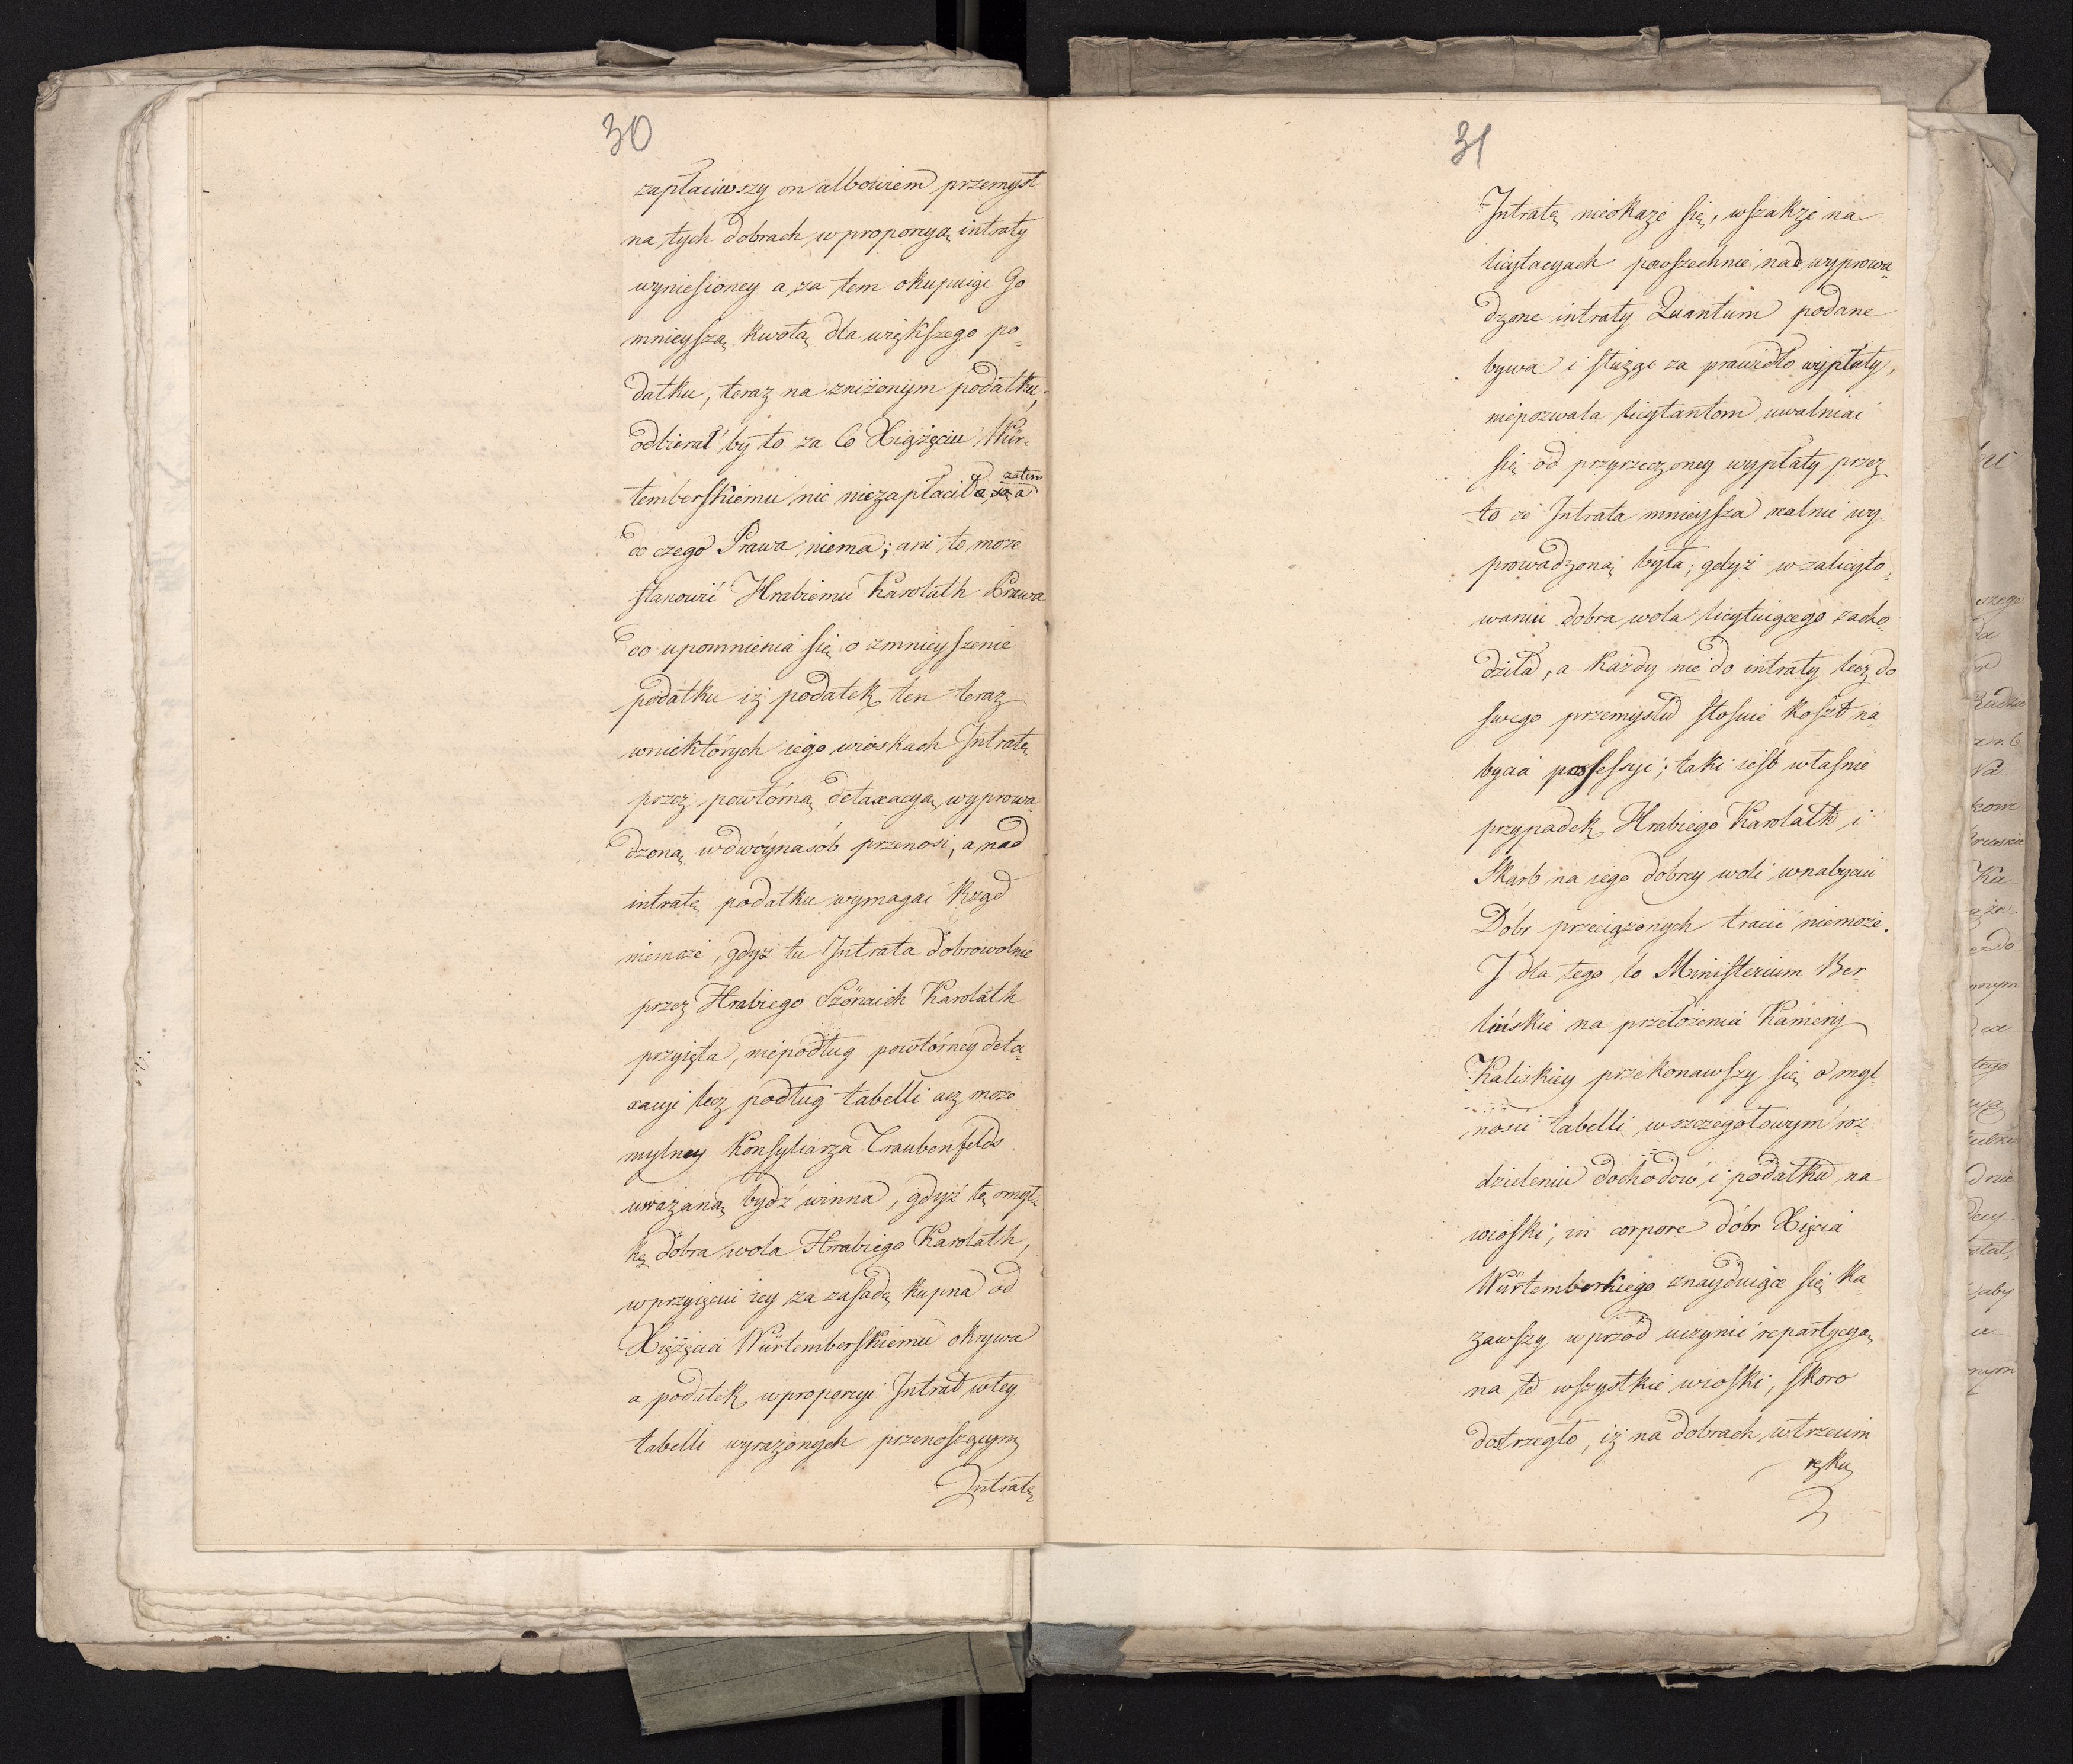 30
zapłaciwszy on albowiem przemysł
na tych dobrach w proporcyą intraty
wyniesioney a za tem okupuiąc Go
mnieyszą kwotą dla większego po=
datku, teraz na zniżonym podatku,
odbierał by to za Co Xiążęciu Wür=
temberskiemu nic niezapłacił a zatem
do czego Prawa niema; ani to może
stanowić Hrabiemu Karolath Prawa
do upomnienia się o zmnieyszenie
podatku iż podatek ten teraz
w niektórych iego wioskach Intratę
przez powtórną detaxacyą wyprowa=
dzoną w dwóynasób przenosi, a nad
intratę podatku wymagać Rząd
niemoże, gdyż tu Intrata dobrowolnie
przez Hrabiego Szönaich Karolath
przyięta, niepodług powtórney deta=
xacyi lecz podług tabelli acz może
mylney Konsyliarza Traubenfelds
uważaną bydź winna, gdyż tę omył=
kę dobra wola Hrabiego Karolath,
w przyięciu iey za zasadę kupna od
Xiążęcia Würtemberskiemu okrywa
a podatek w proporcyi Intrat w tey
tabelli wyrażonych przenoszącym
Intratę
31
Intratę nieokaże się, wszakże na
licytacyach powszechnie nad wyprowa=
dzone intraty Quantum podane
bywa i służąc za prawidło wypłaty,
niepozwala licytantom uwalniać
się od przyrzeczoney wypłaty przez
to że Intrata mnieysza realnie wy=
prowadzoną była; gdyż w zalicyto=
waniu dobra wola licytuiącego zacho=
dziła, a każdy nie do intraty lecz do
swego przemysłu stosuie koszt na=
bycia possessyi; taki iest własnie
przypadek Hrabiego Karolath i
Skarb na iego dobrey woli w nabyciu
Dóbr przeciążonych tracić niemoże.
I dla tego to Ministerium Ber=
lińskie na przełożenia Kamery
Kaliskiey przekonawszy się o myl=
ności tabelli w szczegołowym roz=
dzieleniu dochodów i podatku na
wioski, in corpore dóbr Xięcia
Würtemberkiego znayduiące się ka=
zawszy w przód uczynić repartycyą
na te wszystkie wioski, skoro
dostrzegło, iż na dobrach w trzecim
ręku